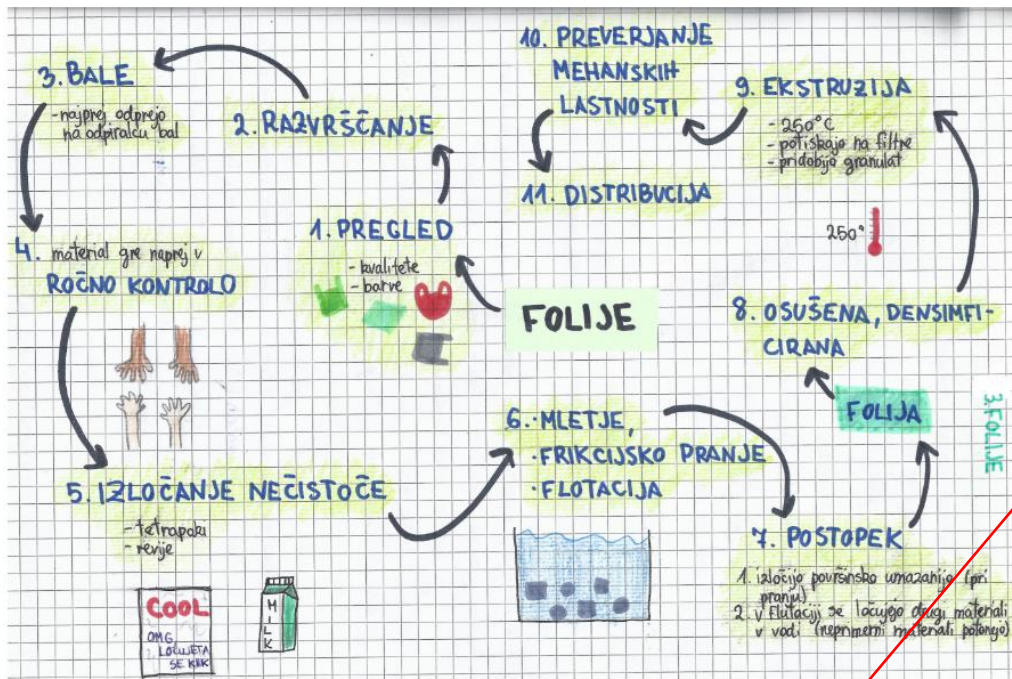 FOLIJE
1. PREGLED
- kvalitete
- barve
2. RAZVRŠČANJE
3. BALE
- najprej odprejo
na odpiralcu bal
4. material gre naprej v
ROČNO KONTROLO
5. IZLOČANJE NEČISTOČE
- tetrapaki
- revije
COOL
OMG
LOČUJETA
SE KYK
MILK
6. · MLETJE,
· FRIKCIJSKO PRANJE
· FLOTACIJA
7. POSTOPEK
1. izločijo površinsko umazanijo (pri
pranju)
2. v flutaciji se ločujejo drugi materiali
v vodi (neprimerni materiali potonejo)
FOLIJA
8. OSUŠENA, DENSIMFI-
CIRANA
250°
9. EKSTRUZIJA
- 250°C
- potiskajo na filtre
- pridobijo granulat
10. PREVERJANJE
MEHANSKIH
LASTNOSTI
11. DISTRIBUCIJA
3. FOLIJE